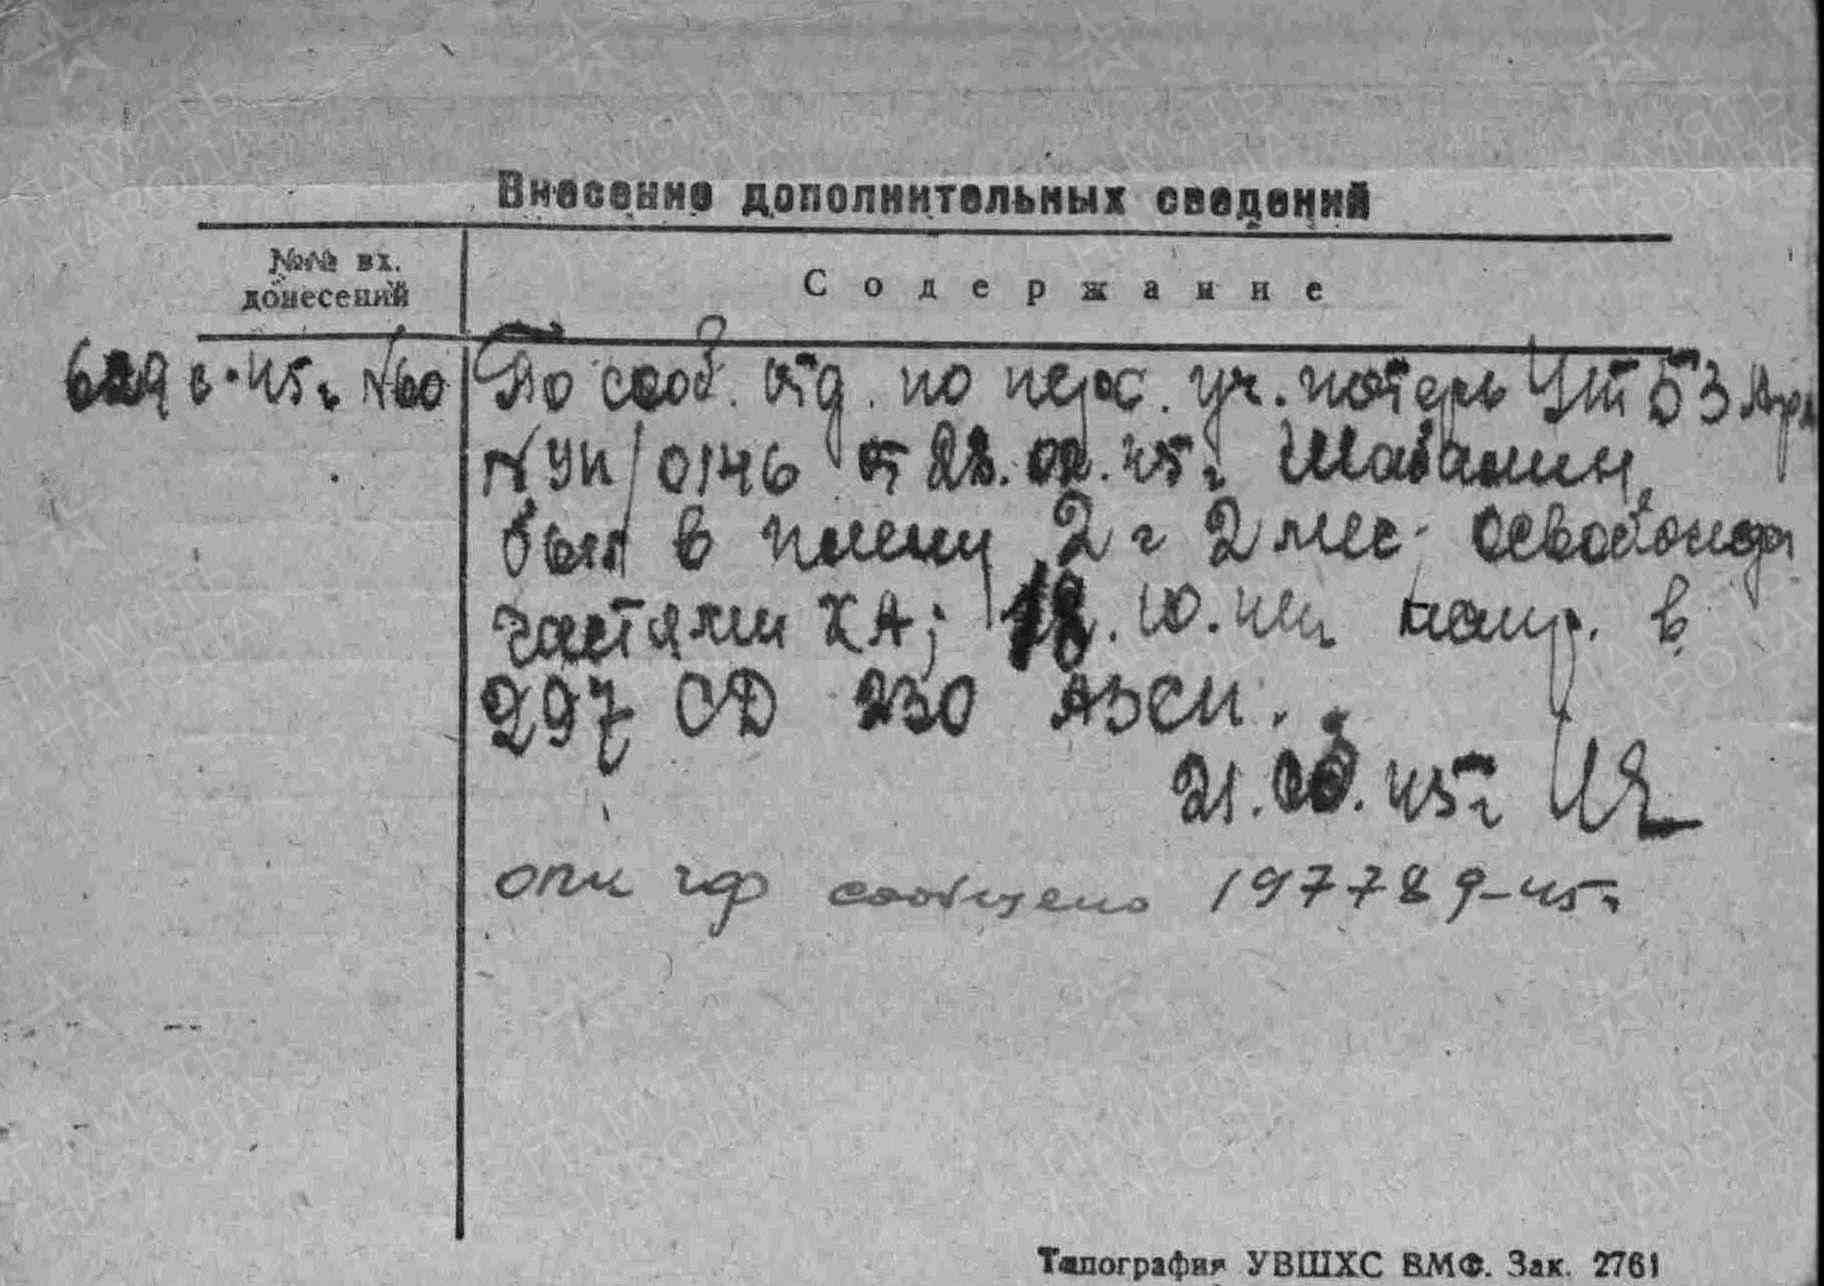 Внесение дополнительных сведений
№№ вх.
донесений
Содержание
629 с-45г. №60
По сооб. отд. по перс. уч. потерь Шт 53 Арм
№УК/0146 от 28.02.45г. Шабанин
был в плену 2 г 2 мес. освобожд
частями КА; 18.10.44г. напр. в
297 СД 230 АЗСП.
21.03.45г
ОПК ЧФ сообщено 197789-45г
Типография УВШХС ВМФ. Зак. 2761
ПАМЯТЬ
НАРОДА